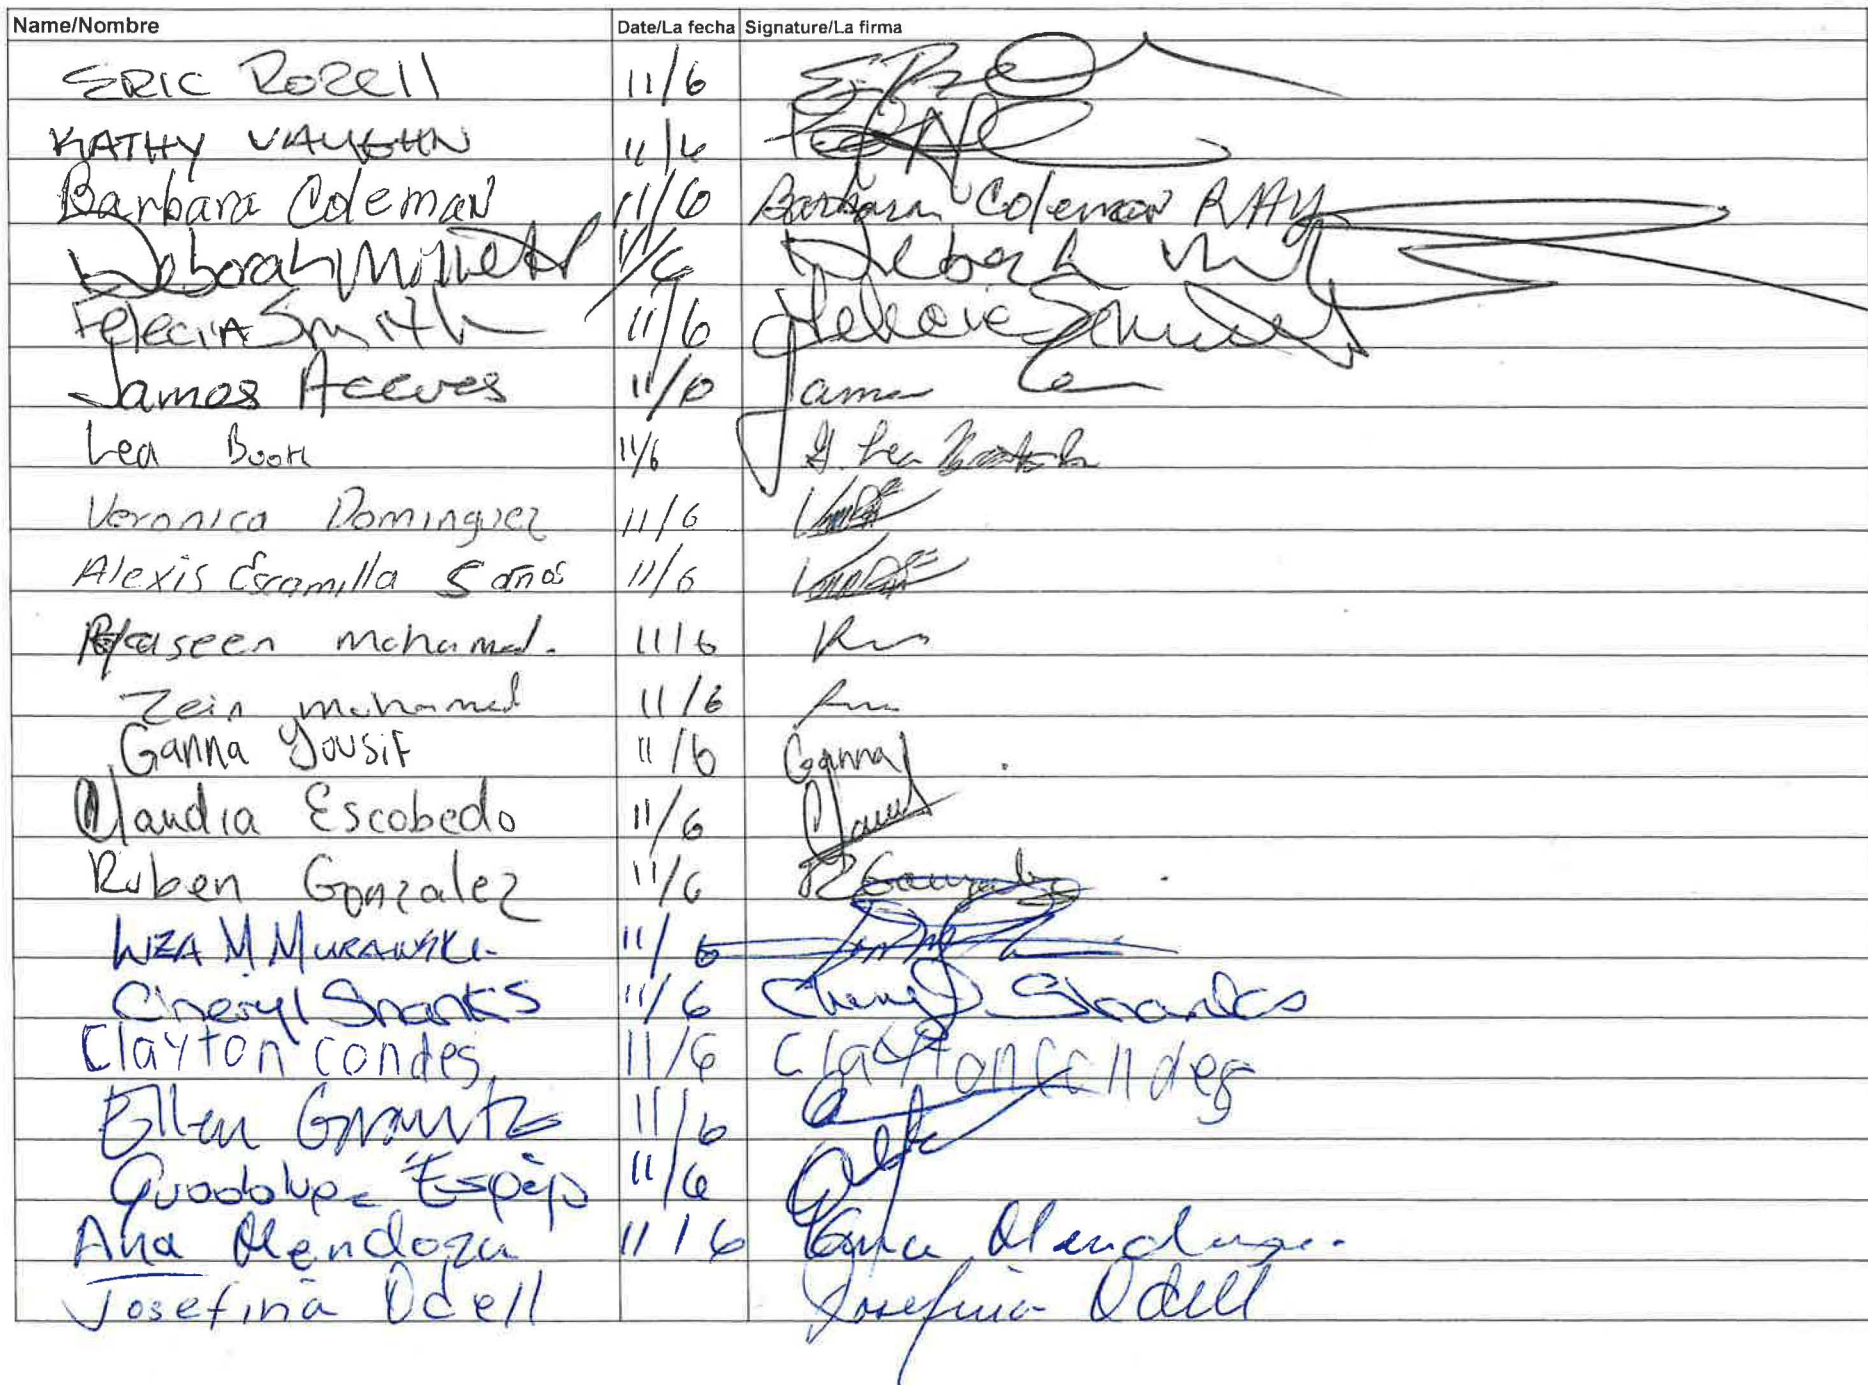 Name/Nombre Date/La fecha Signature/La firma
ERIC Rozell 11/6
KATHY VAUGHN 11/6
Barbara Coleman 11/6 Barbara Coleman RAY
Deborah 11/6 Deborah
Felecia Smith 11/6 Felecia Smith
James Aceves 11/6 James
Lea Booth 11/6 G. Lea Booth
Veronica Dominguez 11/6
Alexis Escamilla 5 años 11/6
Yaseen mohamed. 11/6
Zein mohamed 11/6
Ganna Yousif 11/6 Ganna
Claudia Escobedo 11/6
Ruben Gonzalez 11/6 R Gonzalez
LIZA M MURAWSKI 11/6
Cheryl Shanks 11/6 Cheryl Shanks
Clayton Condes 11/6 Clayton Condes
Ellen 11/6
Guadalupe Espejo 11/6
Ana Mendoza 11/6 Ana Mendoza
Josefina Odell Josefina Odell